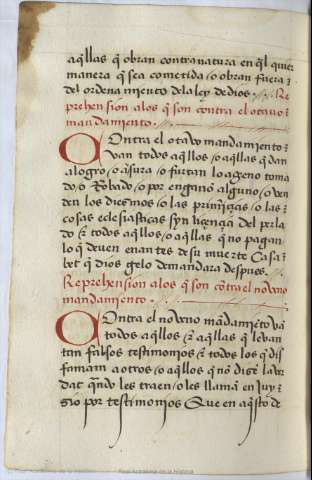 aq̃llas q̃ obran contra natura en q̃l quier
manera q̃ sea cometida / o obran fuera
del ordenamiento de la ley de dios. Re
prehension a los q̃ son contra el otauo
mandamiento.
Contra el otauo mandamiento
van todos aq̃llos / o aq̃llas q̃ dan
a logro / o usura / o furtan lo ageno toma
do / o Robado / o por engano alguno / o ven
den los diesmos / o las primiçias / o las
cosas eclesiasticas syn liçençia del perla
do & todos aq̃llos / o aq̃llas q̃ no pagan
lo q̃ deuen en antes de su muerte Ca sa
bet q̃ dios gelo demandara despues.
Reprehension a los q̃ son cõtra el noueno
mandamiento.
Contra el noueno mãdamiẽto vã
todos aq̃llos & aq̃llas q̃ leuan
tan falsos testimonios & todos los q̃ dis
faman a otros / o aq̃llos q̃ nõ disẽ la ver
dat qñdo les traen / o les llamã en juy
sio por testimonios Que en aq̃sto de
Real Academia de la Historia